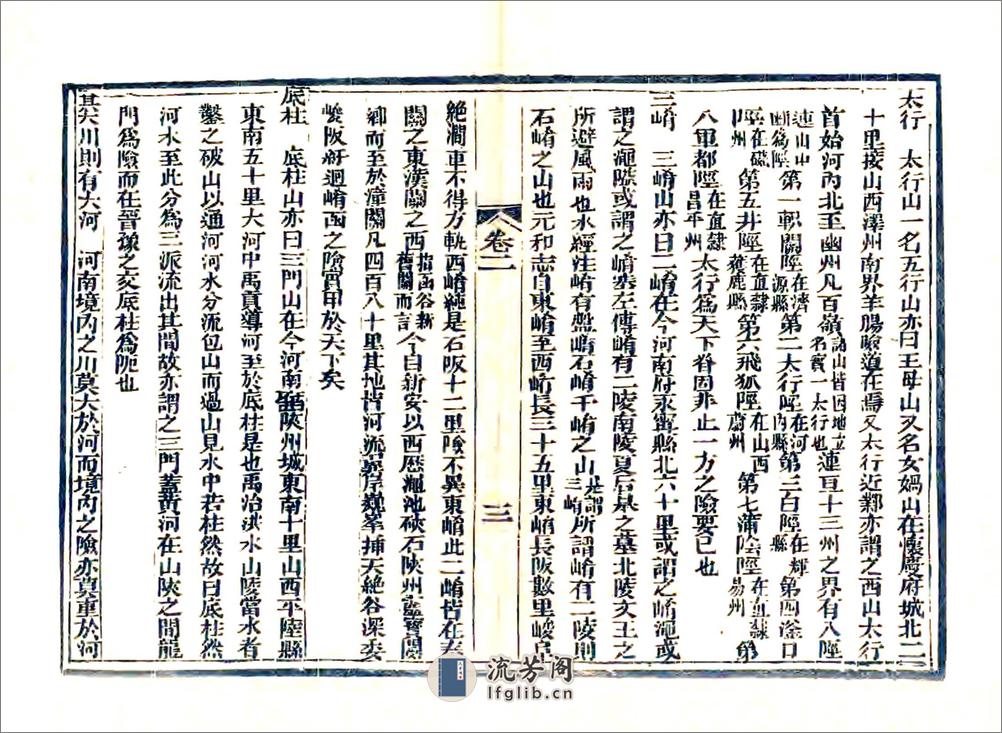 太行　太行山一名五行山亦曰王母山又名女媧山在懷慶府城北二
十里接山西澤州南界羊腸險道在焉又太行近鄴亦謂之西山太行
首始河內北至幽州凡百嶺諸山皆因地立名實一太行也連亘十三州之界有八陘
連山中斷爲陘第一軹關陘在濟源縣第二大行陘在河內縣第三白陘在輝縣第四滏口
陘在磁州第五井陘在直隸獲鹿縣第六飛狐陘在山西蔚州第七蒲陰陘在直隸易州第
八軍都陘在直隸昌平州太行爲天下脊固非止一方之險要已也
三崤　三崤山亦曰二崤在今河南府永寧縣北六十里或謂之崤澠或
謂之澠隘或謂之崤塞左傳崤有二陵南陵夏后皋之墓北陵文王之
所避風雨也水經注崤有盤崤石崤千崤之山是謂三崤所謂崤有二陵則
石崤之山也元和志自東崤至西崤長三十五里東崤長阪數里峻阜
卷二
三
絶澗車不得方軌西崤純是石阪十二里險不異東崤此二崤皆在秦
關之東漢關之西指函谷新舊關而言今自新安以西歷澠池硤石陝州靈寶閿
鄉而至於潼關凡四百八十里其地皆河流翼岸巍峯插天絶谷深委
峻阪紆迴崤函之險實甲於天下矣
底柱　底柱山亦曰三門山在今河南陝州城東南十里山西平陸縣
東南五十里大河中禹貢導河至於底柱是也禹治洪水山陵當水者
鑿之破山以通河河水分流包山而過山見水中若柱然故曰底柱然
河水至此分爲三派流出其間故亦謂之三門蓋黃河在山陝之間龍
門爲險而在晉豫之交底柱爲阨也
其大川則有大河　河南境內之川莫大於河而境內之險亦莫重於河
流芳阁
lfglib.cn